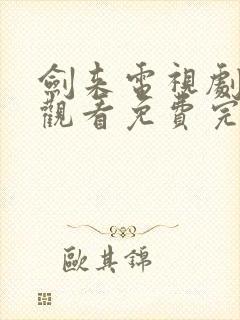 劍來電視劇
觀看免費完
歐其錦